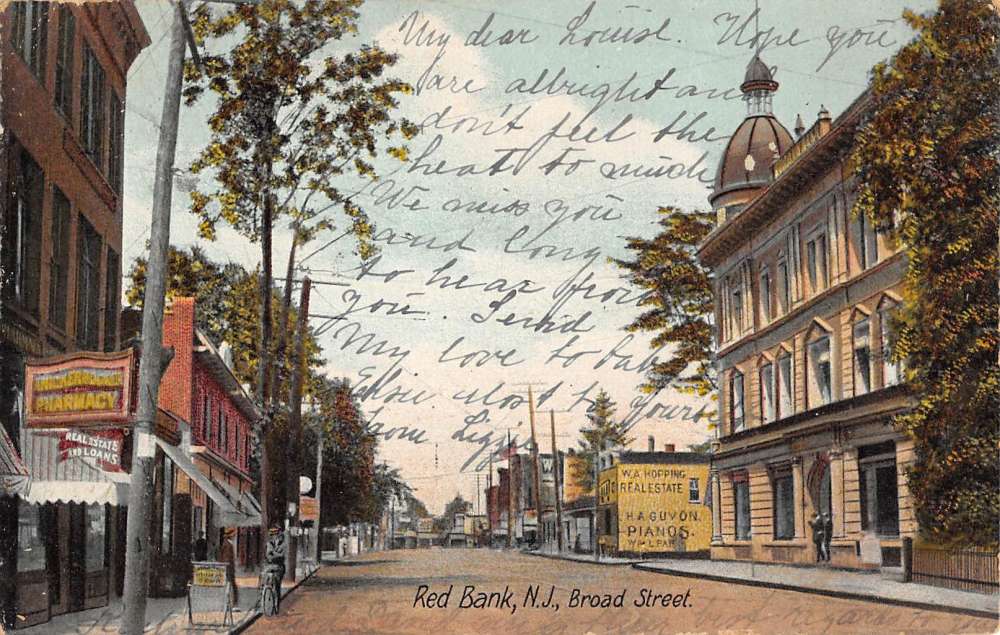 My dear Louise. Hope you
are albright and
don't feel the
heat to much
We miss you
and long
to hear from
you. Send
My love to baby
Elsie almost to
Yours
from Lizzie
PHARMACY
REAL ESTATE
AND LOANS
W.A. HOPPING
REAL ESTATE
H.A. GUYON.
PIANOS.
WALL PAPER
Red Bank, N.J., Broad Street.